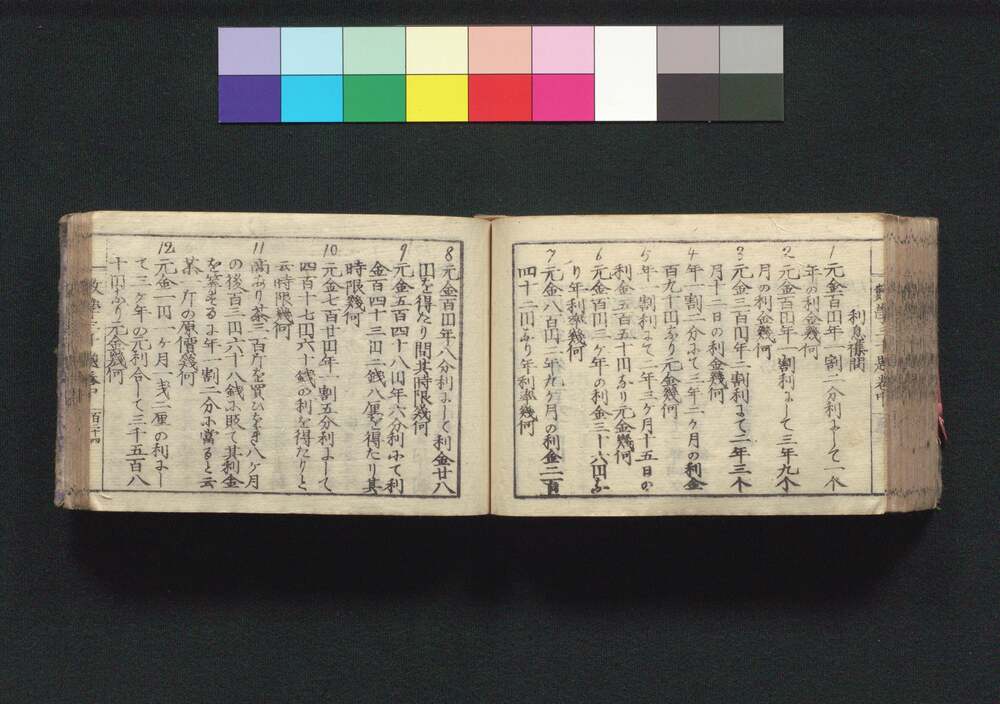 利息雜問
1 元金百円年一割二分利ニして一个
年の利金幾何
2 元金百円年一割利ニして三年九个
月の利金幾何
3 元金三百円年二割利ニて二年三个
月十二日の利金幾何
4 年一割二分ニて三年二ヶ月の利金
百九十円なり元金幾何
5 年一割利にて一年三ヶ月十五日の
利金五百五十円なり元金幾何
6 元金百円一ヶ年の利金三十六円な
り年利率幾何
7 元金八百円一年九ヶ月の利金二百
四十二円なり年利率幾何
8 元金百円年八分利ニして利金廿八
円を得たり問其時限幾何
9 元金五百四十八円年六分利ニて利
金百四十三円二銭八厘を得たり其
時限幾何
10 元金七百廿円年一割五分利ニして
四百十七円六十銭の利を得たりと
云時限幾何
11 商あり茶三百斤を買ひをき八ヶ月
の後百三円六十八銭ニ販て其利金
を算するに年一割二分ニ當ると云
茶一斤の原價幾何
12 元金一円一ヶ月一戔二厘の利ニし
て三ヶ年の元利合して三千五百八
十円なり元金幾何